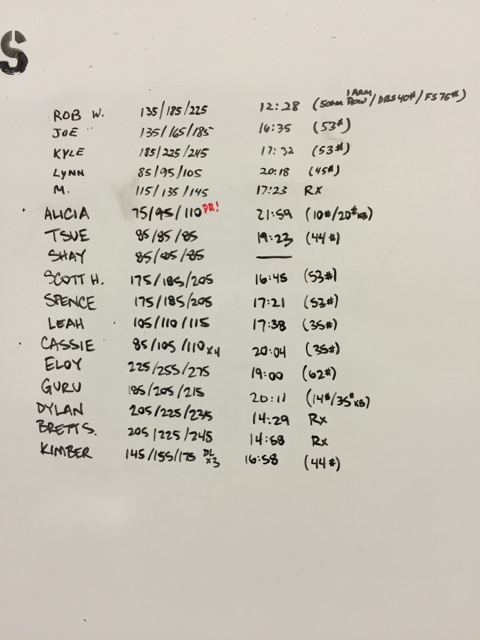 S
ROB W. 135/185/225 12:28 (500m 1 ARM ROW/DBS 40#/FS 75#)
JOE 135/165/185 16:35 (53#)
KYLE 185/225/245 17:32 (53#)
LYNN 85/95/105 20:18 (45#)
M. 115/135/145 17:23 RX
ALICIA 75/95/110 PR! 21:59 (10#/20#KB)
TSUE 85/85/85 19:23 (44#)
SHAY 85/85/85 —
SCOTT H. 175/185/205 16:45 (53#)
SPENCE 175/185/205 17:21 (53#)
LEAH 105/110/115 17:38 (35#)
CASSIE 85/105/110 x4 20:04 (35#)
ELOY 225/255/275 19:00 (62#)
GURU 185/205/215 20:11 (14#/35#KB)
DYLAN 205/225/235 14:29 Rx
BRETT S. 205/225/245 14:58 Rx
KIMBER 145/155/175 DL x3 16:58 (44#)